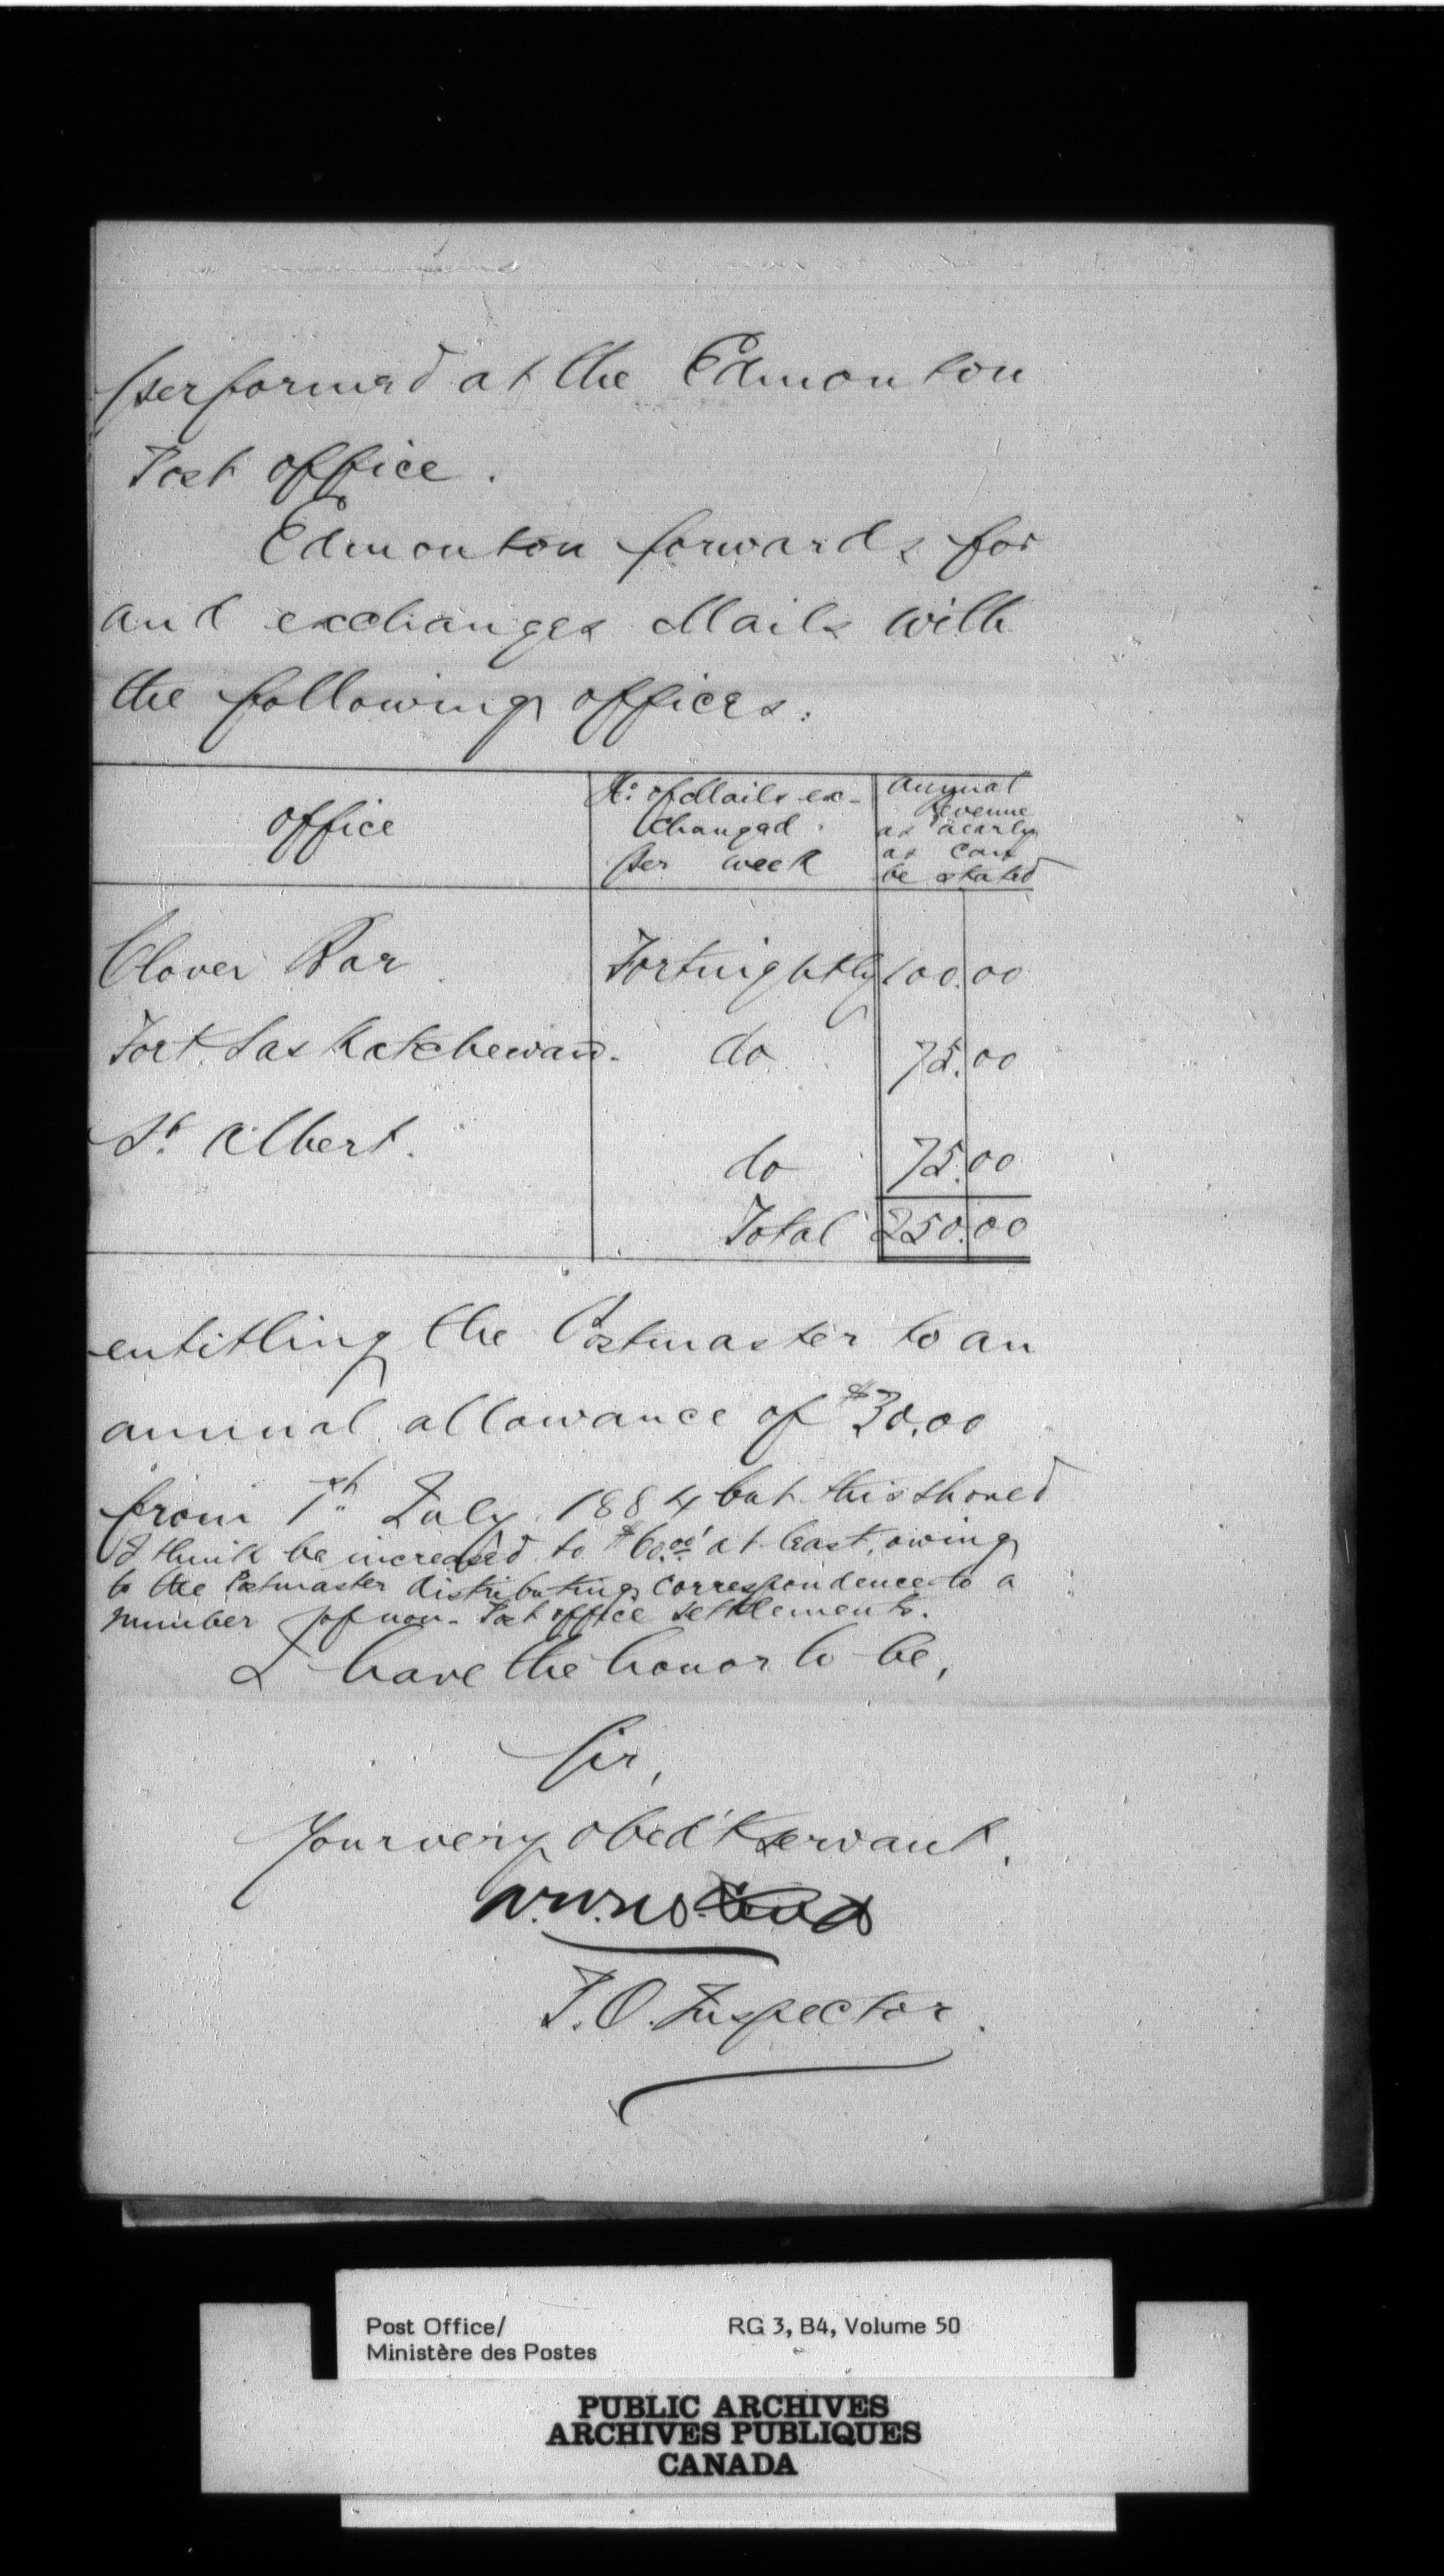 performed at the Edmonton
Post office.
Edmonton forwards for
and exchanges Mails with
the following offices.
office
No. of Mails ex-
changed
per week
Annual
Revenue
as nearly
as can
be stated
Clover Bar Fortnightly 100.00
Fort Saskatchewan. do 75.00
St. Albert. do 75.00
Total 250.00
entitling the Postmaster to an
annual allowance of $30.00
from 1st July 1884 but this should
I think be increased to $60.00 at least, owing
to the Postmaster distributing correspondence to a
number of non-Post office settlements.
I have the honor to be,
Sir,
Your very obed't servant,
P.O. Inspector.
Post Office/
Ministère des Postes
RG 3, B4, Volume 50
PUBLIC ARCHIVES
ARCHIVES PUBLIQUES
CANADA